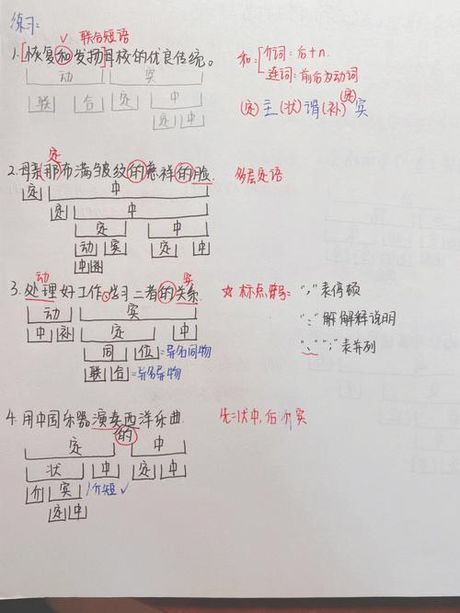 练习:
联合短语
1.[恢复和发扬]母校的优良传统。
和:[介词:后+n.
连词:前后为动词
动 宾
联 合 定 中
定 中
(定)主(状)谓(补)(定)宾
定
2.母亲那布满皱纹的慈祥的脸
多层定语
定 中
定 中
定 中
动 宾 定 中
中 补
动 宾
3.处理好工作、学习二者的关系
☆标点符号:"," 表停顿
":" 解释说明
"、" ";" 表并列
动 宾
中 补 定 中
同 位 =异名同物
联 合 =异名异物
4.用中国乐器演奏西洋乐曲
的
先:状中,后介宾
定 中
状 中 定 中
介 宾 介短✓
定 中